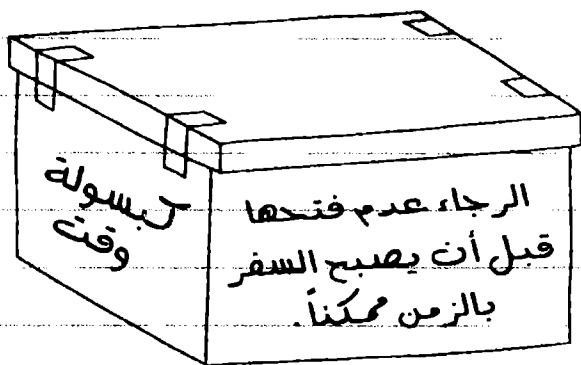 كبسولة
وقت
الرجاء عدم فتحها
قبل أن يصبح السفر
بالزمن ممكناً.